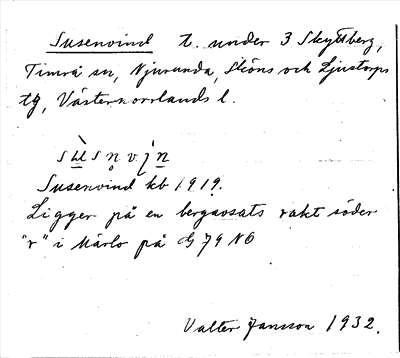 Susenvind t. under 3 Skyttberg,
Timrå sn, Njurunda, Sköns och Ljustorps
tg, Västernorrlands l.
Susenvind kb 1919.
Ligger på en bergavsats rakt söder
"r" i Märlo på G 79 NO
Valter Jansson 1932.